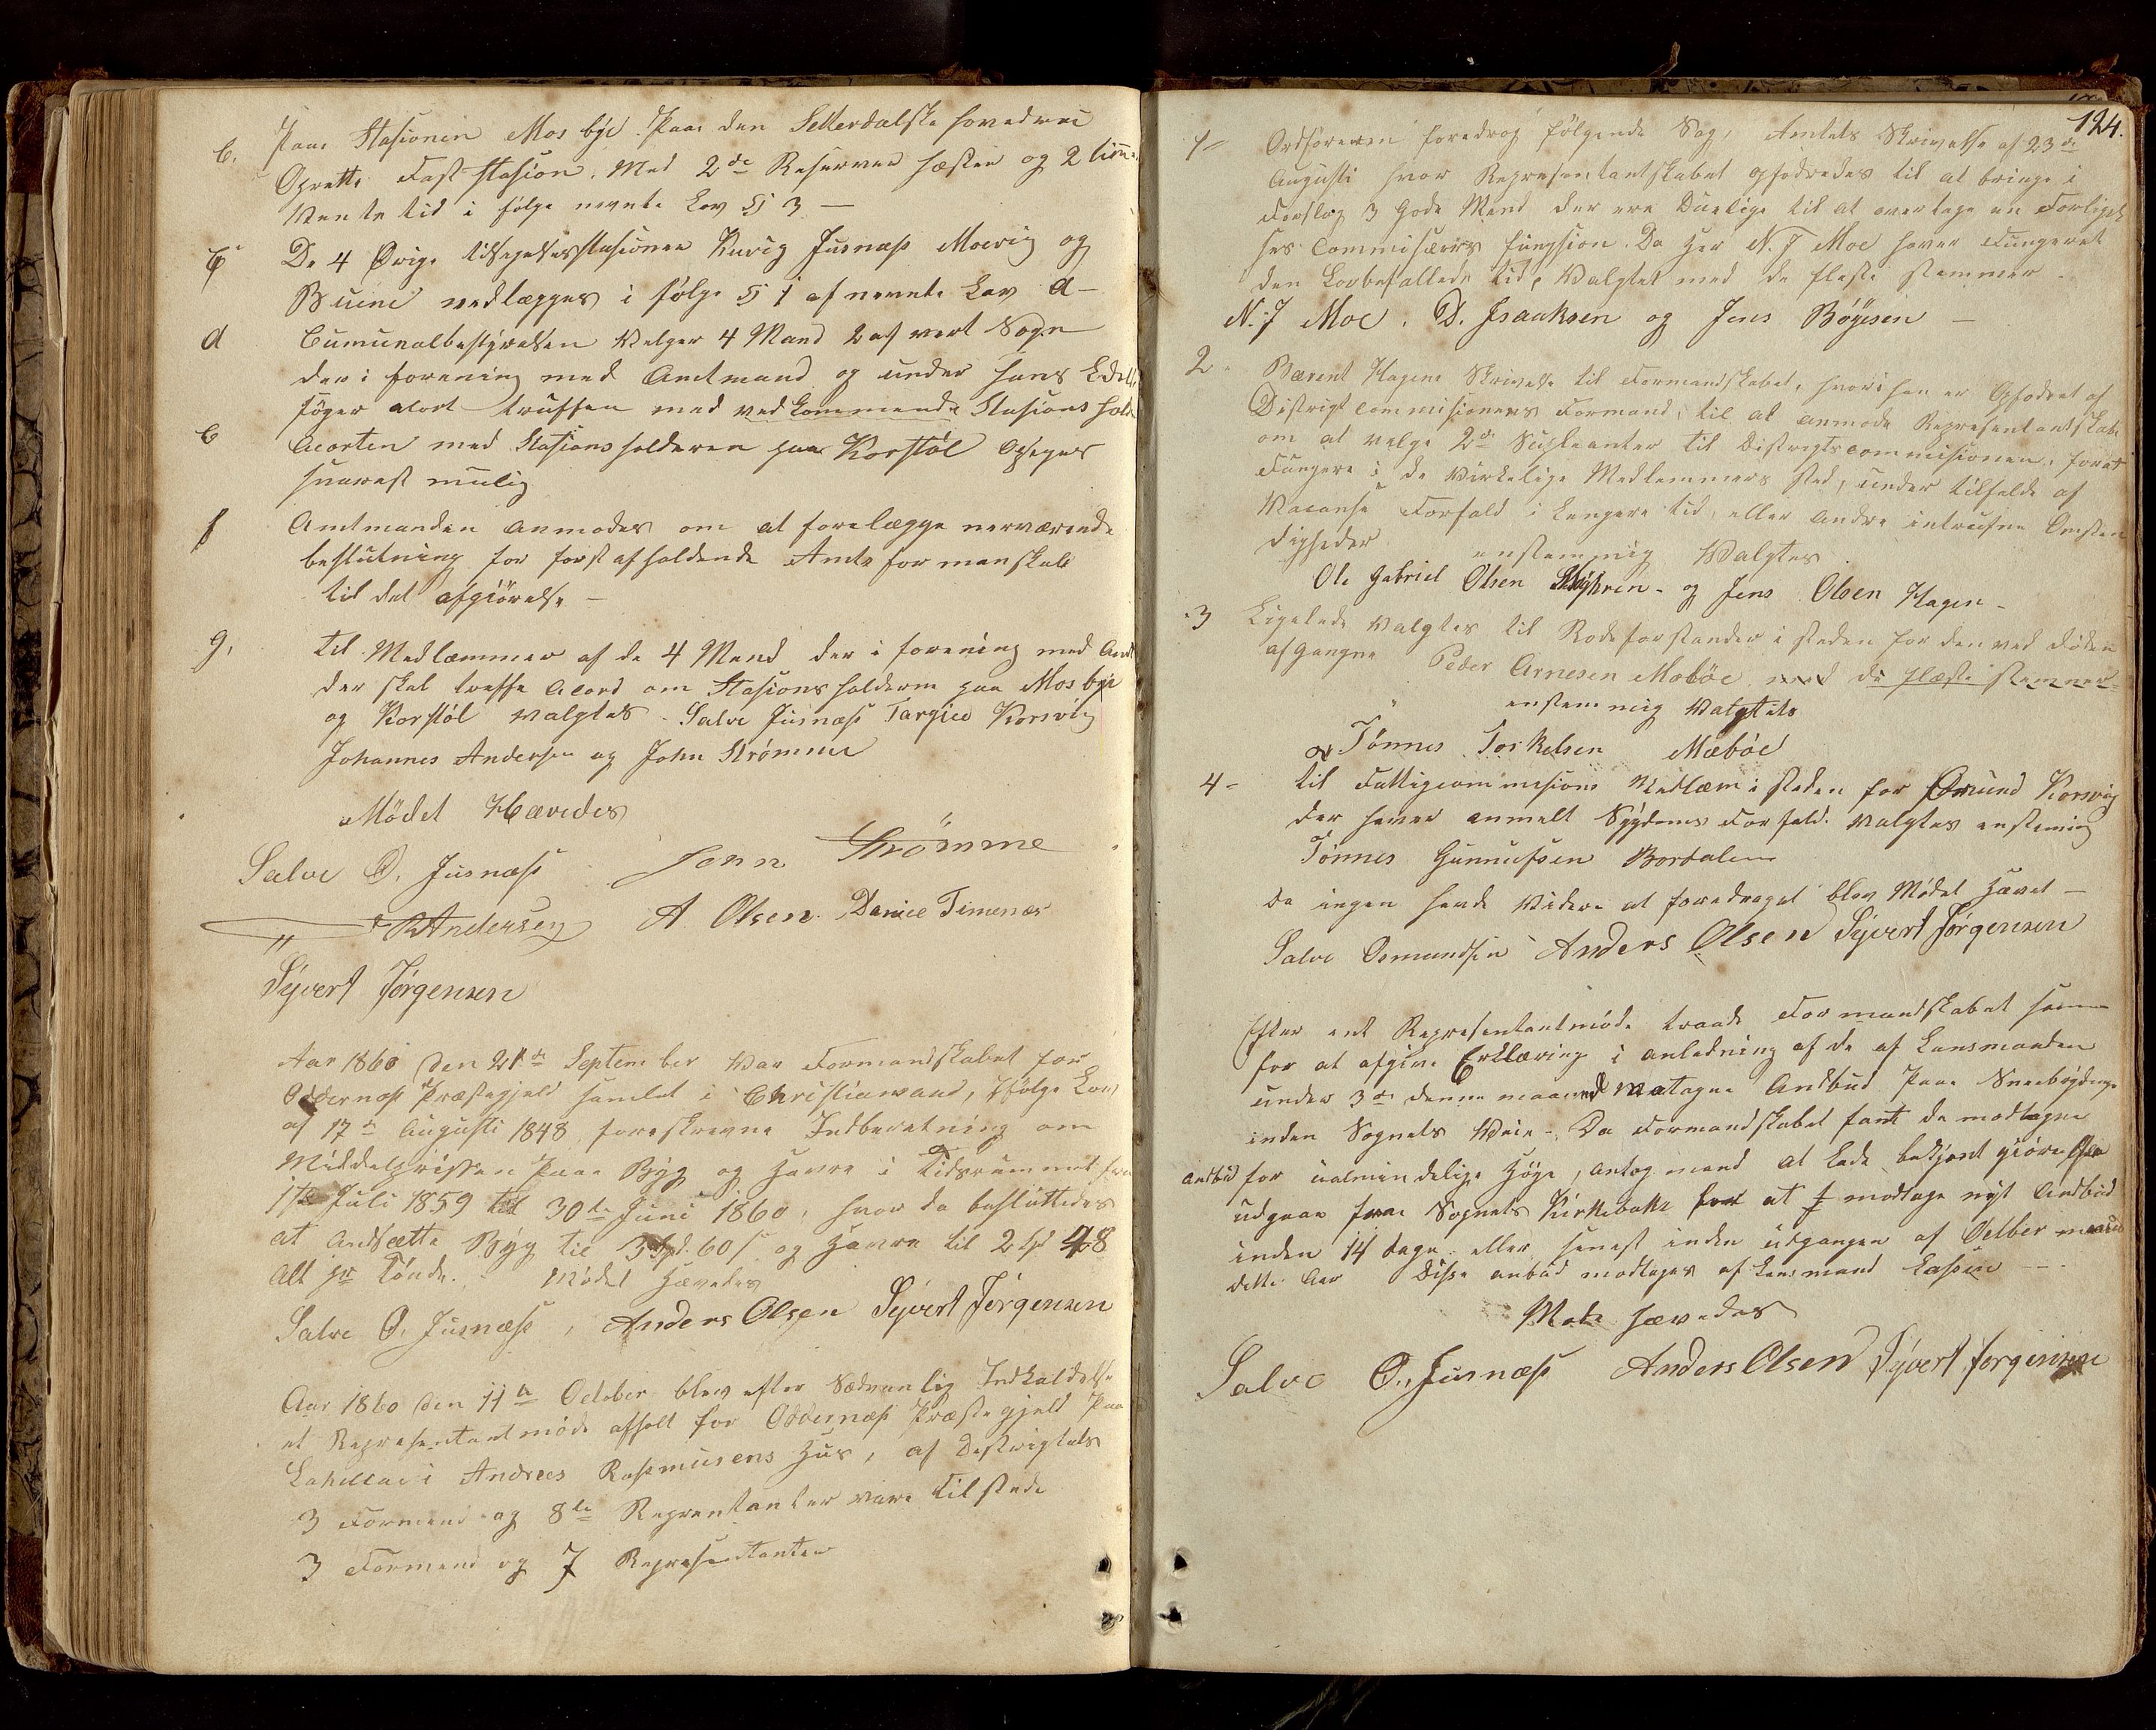 b. Paa Stasionen Mosbye. Paa den Setterdalske hovedvei
Oprette Fast Stasion. Med 2de Reserver hæster og 2 time
Vente tid i følge nevnte Lov § 3 —
De 4 Øvrige tilsigelsesstasioner Kuvig Jusnæss Moevig og
Buene nedlægges i følge § 1 af nevnte Lov a —
d Cumunalbestyrelsen Velger 4 Mand 2 af vert Sogn
der i forening med Amtmand og under hans Ledelse
søger acort truffen med vedkommende Stasionshol
e Acorten med Stasionsholderen paa Korsføl Opsiges
snarest mulig
f Amtmanden anmodes om at forelægge nerværende
beslutning for først afholdende Amtsformanskab
til det afgiørelse —
g. til Medlæmmer af de 4 Mend der i forening med Amt
der skal treffe Acord om Stasionsholderne paa Mosbye
og Korsføl valgtes. Salve Jusnæss Targies Korsvig
Johannes Andersen og John Strømme
Mödet Hævedes
Salve O. Jusnæss John Strömme
Andersen A. Olsen. Daniel Timenæs
Syvert Jørgensen
Aar 1860 den 21de September Var Formandskabet for
Oddernæss Præstegjeld samlet i Christiansand, ifølge Lov
af 17de Augusti 1848, foreskrevne Indberetning om
Middelprissen paa Byg og Havre i Tidsrummet fra
1ste Juli 1859 til 30te Juni 1860, hvor da besluttedes
at Andsætte Byg til 3 Spd. 60 s og Havre til 2 spd 48
Alt pr Tønde. Mødet Hævedes
Salve O. Jusnæss, Anders Olsen Syvert Jørgensen
Aar 1860 den 11te October blev efter Sædvanlig Indkaldelse
et Representantmøde afholt for Oddernæss Præstegjeld paa
Lahellai Andrees Rasmusens Hus, af Destrigtets
3 Formend og 8te Reprentanter vare tilstede
3 Formend og 7 Representanter
124.
1 - Ordføreren foredrog følgende Sag, Amtets Skrivelse af 23de
Augusti hvor Representantskabet opfodredes til at bringe i
Forslag 3 Gode Mend der ere Duelige til at overtage en Forligel
ses Commisærs fungsion. Da Her N. J Moe haver Fungeret
den Lovbefallede tid, Valgtes med de fleste stemmer
N. J Moe. D. Isaaksen og Jens Böyesen —
2. Bærent Hagens Skrivelse til Formandskabet, hvori han er Opfodret af
Distrigtcommisionens Formand, til at anmode Representantskabe
om at velge 2de Supleanter til Distrigtscommisionen, for at
Fungere i de Virkelige Medlemmers sted, under tilfelde af
Vacanse Forfald i Lengere tid, eller andre intrufne Omsten
digheder enstemmig Valgtes
Ole Gabriel Olsen og Jens Olsen Hagen -
3 Ligelede Valgtes til Rodeforstander i steden for den ved døden
afgangne Peder Arnesen Moböe med de fleste stemmer
enstemmig Valgtes
Tönnes Torkelsen Mæböe
4 - til Fattigcommisions Medlæm i steden for Omund Korsvig
der haver anmelt Sygdoms Forfald. Valgtes enstemig
Tönnes Gunnufsen Bordalen
Da ingen havde Videre at foredraget blev Mödet Hævet —
Salve Osmundsen Anders Olsen Syvert Jørgensen
Efter ent Representantmöde traade Formandskabet samme
for at afgive Erklæring i anledning af de af Lensmanden
under 3de denne maaned Motagne Andbud paa Sneebrydning
inden Sognets Veie. Da Formandskabet fant de modtagne
anbud for ualmindelige Høye, antog mand at Lade bekjent giøre
udgaae fra Sognets Kirkebakke at modtage nyt Andbud
inden 14 dage eller senest inden udgangen af Octber maaned
dette Aar Disse anbud modtages af Lensmand Lassen —
Møte hævedes
Salve O. Jusnæss Anders Olsen Syvert Jørgensen